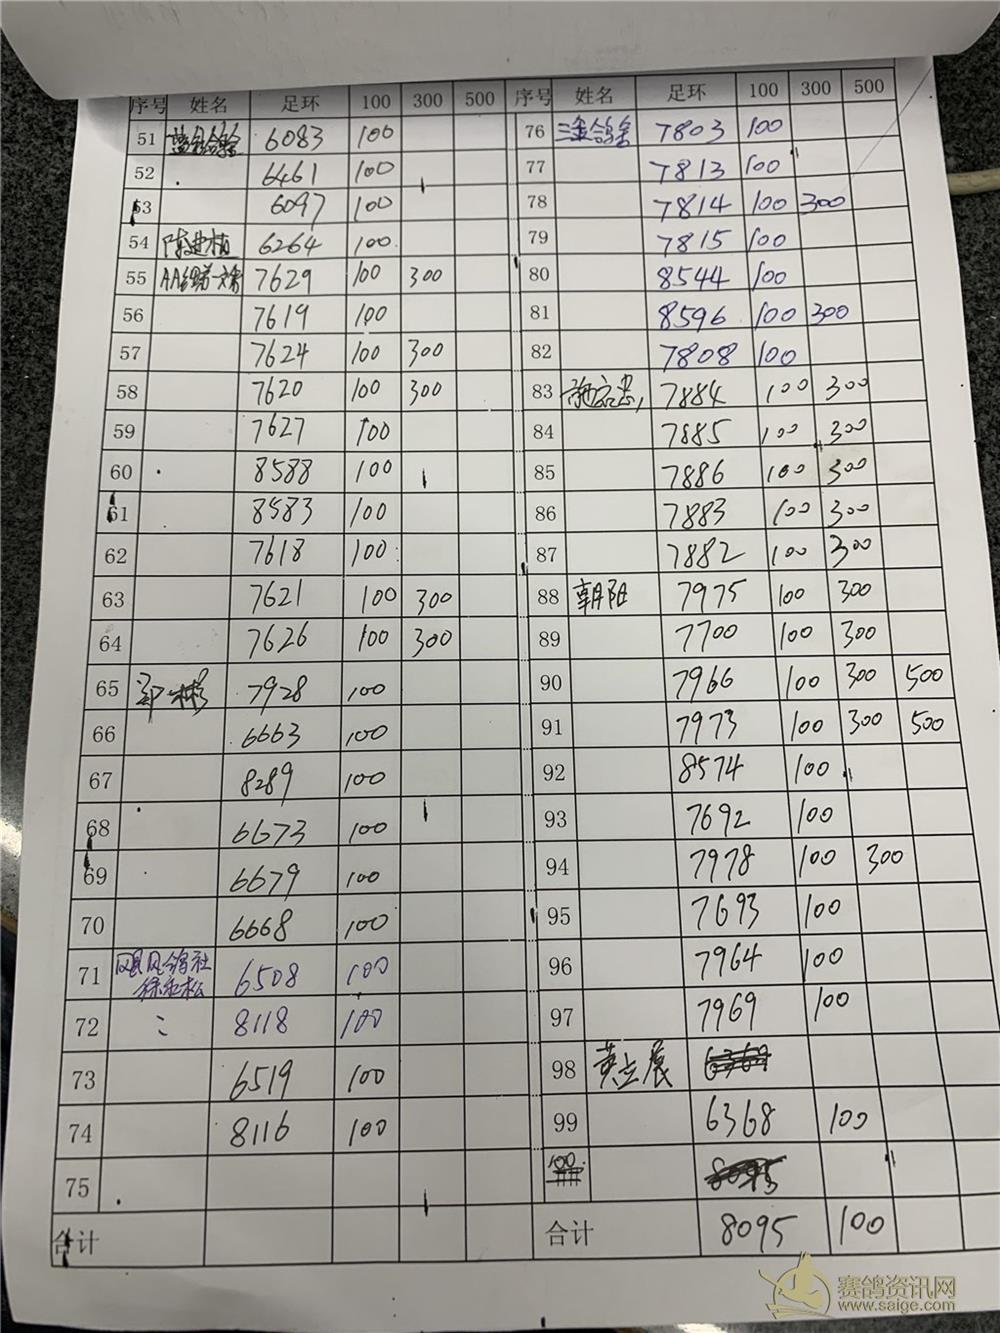 序号 姓名 足环 100 300 500 序号 姓名 足环 100 300 500
51 6083 100 76 7803 100
52 6461 100 77 7813 100
53 6097 100 78 7814 100 300
54 6264 100 79 7815 100
55 7629 100 300 80 8544 100
56 7619 100 81 8596 100 300
57 7624 100 300 82 7808 100
58 7620 100 300 83 7884 100 300
59 7627 100 84 7885 100 300
60 8588 100 85 7886 100 300
61 8583 100 86 7883 100 300
62 7618 100 87 7882 100 300
63 7621 100 300 88 朝阳 7975 100 300
64 7626 100 300 89 7700 100 300
65 7928 100 90 7966 100 300 500
66 6663 100 91 7973 100 300 500
67 8289 100 92 8574 100
68 6673 100 93 7692 100
69 6679 100 94 7978 100 300
70 6668 100 95 7693 100
71 飓风鸽社 6508 100 96 7964 100
72 8118 100 97 7969 100
73 6519 100 98 黄立展 6369
74 8116 100 99 6368 100
75 100 8095
合计 合计 8095 100
赛鸽资讯网
www.saige.com